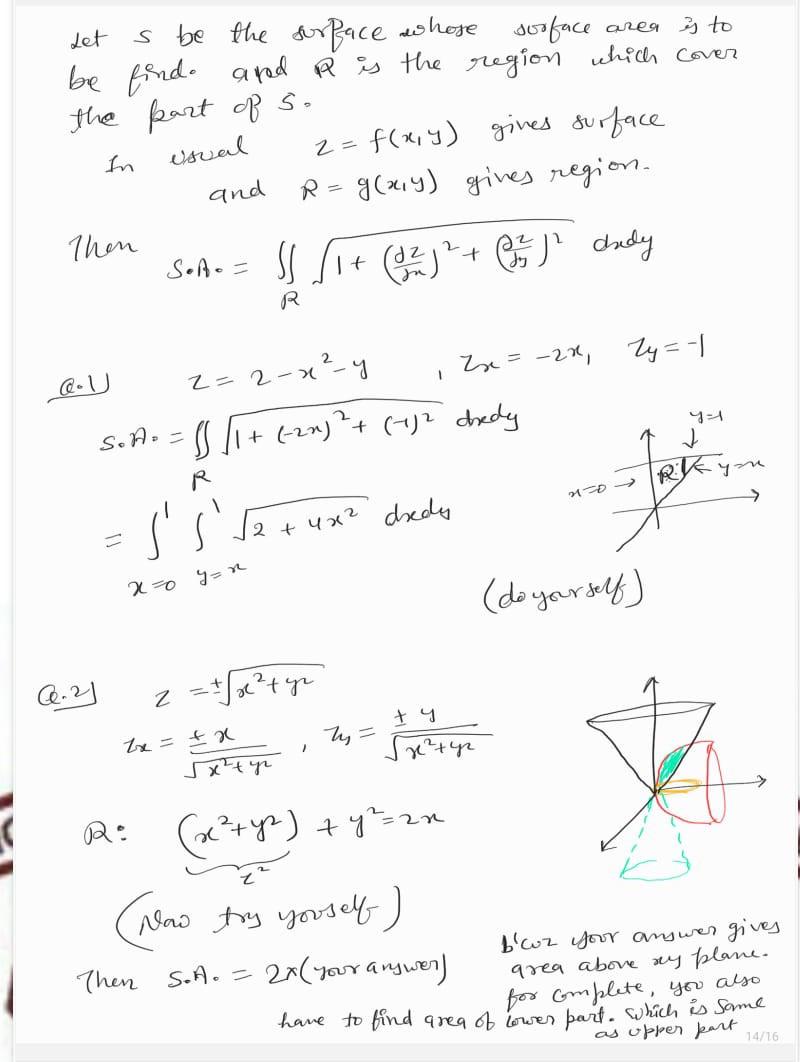 Let S be the surface whose surface area is to
be find. and R is the region which cover
the part of S.
In usual z = f(x,y) gives surface
and R = g(x,y) gives region.
Then S.A. = ∬_R √(1 + (∂z/∂x)² + (∂z/∂y)²) dxdy
Q.1] z = 2 - x² - y , Zx = -2x, Zy = -1
S.A. = ∬_R √(1 + (-2x)² + (-1)²) dxdy
y=1
R
y=x
x=0
= ∫_{x=0}^{1} ∫_{y=x}^{1} √(2 + 4x²) dxdy
(do yourself)
Q.2] z = ±√(x²+y²)
Zx = ±x/√(x²+y²) , Zy = ±y/√(x²+y²)
R: (x²+y²) + y² = 2x
z²
(Now try yourself)
Then S.A. = 2x(your answer)
b'coz your answer gives
area above xy plane.
for complete, you also
have to find area of lower part. which is same
as upper part
14/16